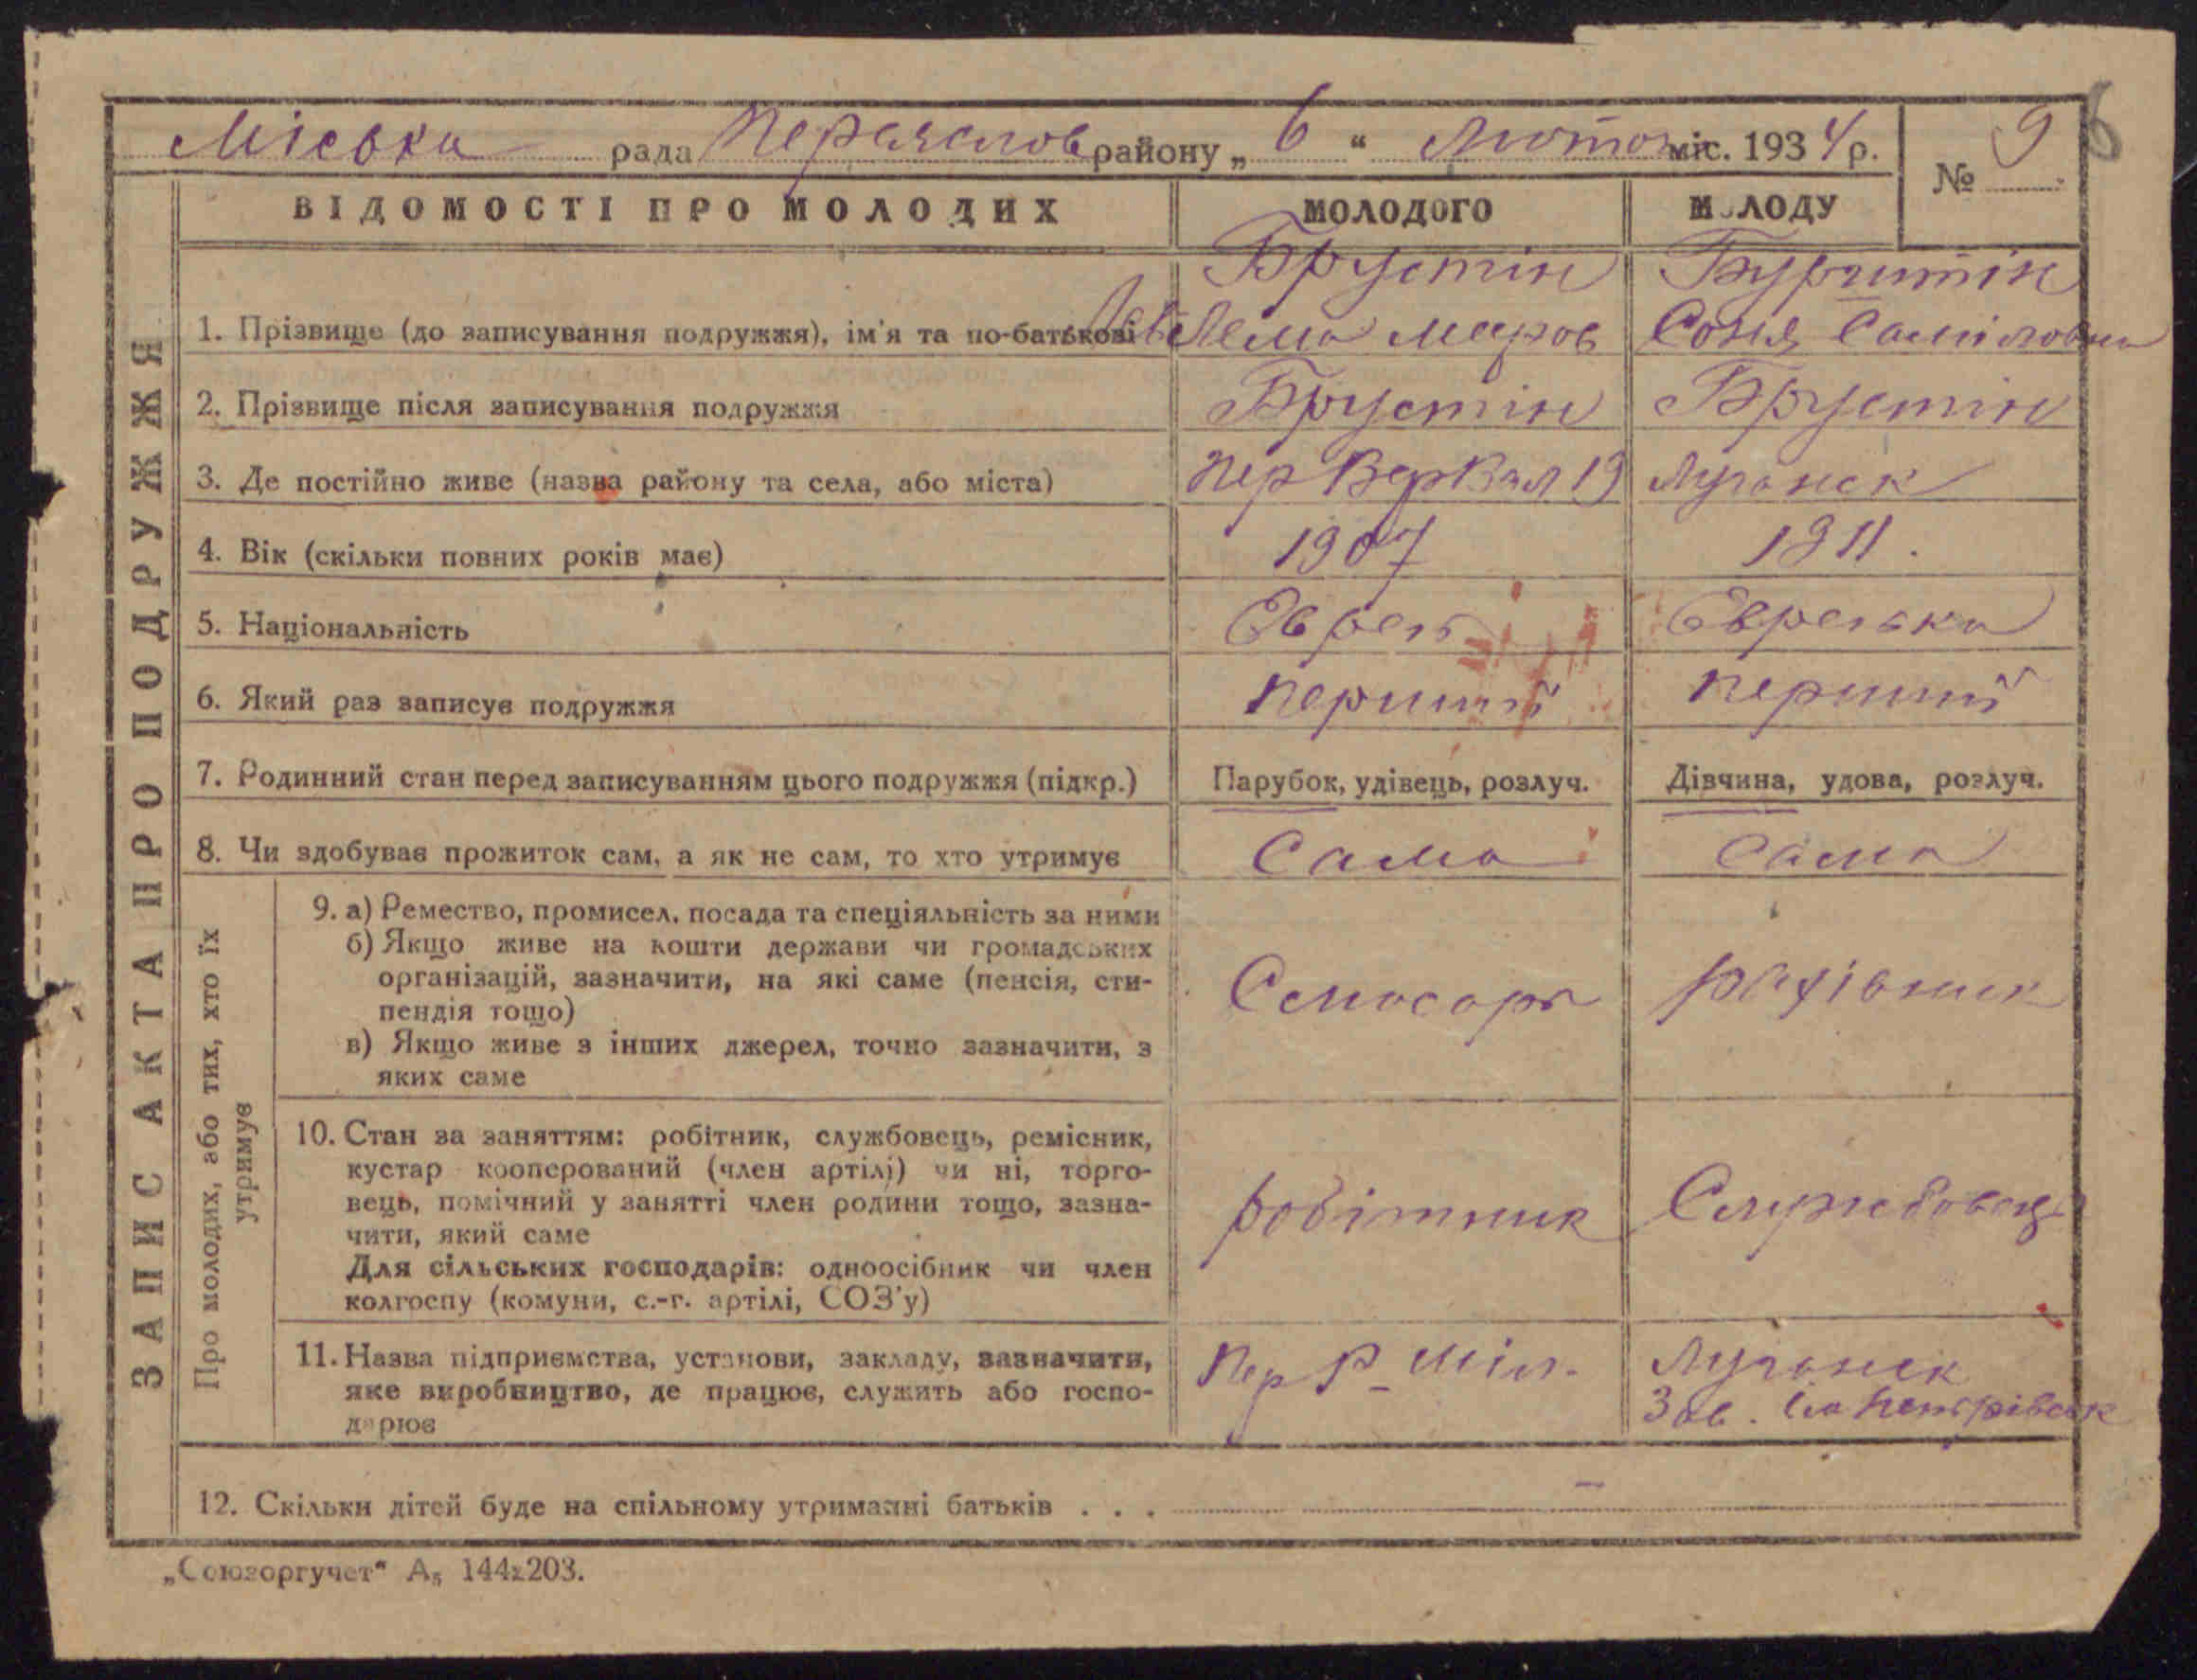 Міська рада Переяслов району „ 6 “ Лютого міс. 1934 р.
№ 9
6
ВІДОМОСТІ ПРО МОЛОДИХ
МОЛОДОГО
МОЛОДУ
ЗАПИС АКТА ПРО ПОДРУЖЖЯ
Брустін
Бурштін
1. Прізвище (до записування подружжя), ім'я та по-батькові
Лема Меєров
Соня Саміловна
2. Прізвище після записування подружжя
Брустін
Брустін
3. Де постійно живе (назва району та села, або міста)
Пер Вер Вал 19
Луганск
4. Вік (скільки повних років має)
1907
1911.
5. Національність
Еврей
Еврейка
6. Який раз записує подружжя
перший
перший
7. Родинний стан перед записуванням цього подружжя (підкр.)
Парубок, удівець, розлуч.
Дівчина, удова, розлуч.
8. Чи здобуває прожиток сам, а як не сам, то хто утримує
Сама
Сама
Про молодих, або тих, хто їх
утримує
9. а) Ремество, промисел, посада та спеціяльність за ними
б) Якщо живе на кошти держави чи громадських
організацій, зазначити, на які саме (пенсія, сти-
пендія тощо)
в) Якщо живе з інших джерел, точно зазначити, з
яких саме
Слюсарь
рахівник
10. Стан за заняттям: робітник, службовець, ремісник,
кустар кооперований (член артілі) чи ні, торго-
вець, помічний у занятті член родини тощо, зазна-
чити, який саме
Для сільських господарів: одноосібник чи член
колгоспу (комуни, с.-г. артілі, СОЗ'у)
робітник
Службовець
11. Назва підприємства, установи, закладу, зазначити,
яке виробництво, де працює, служить або госпо-
дарює
Пер Р- Міл.
Луганск
Зав.
12. Скільки дітей буде на спільному утриманні батьків . . . –
„Союзоргучет“ А₅ 144х203.